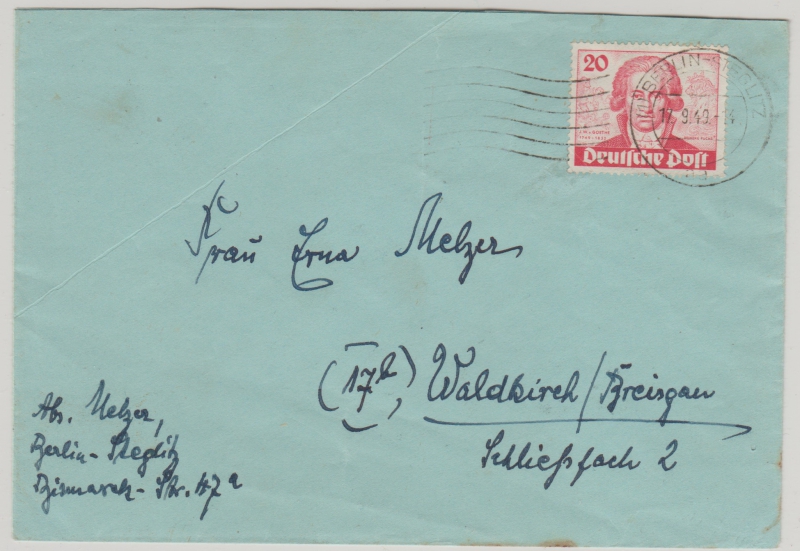 20
BERLIN-STEGLITZ
17.9.49.-14
Deutsche Post
Frau Erna Melzer
(17b) Waldkirch/Breisgau
Schließfach 2
Abs. Melzer,
Berlin-Steglitz
Bismarck-Str. 47a